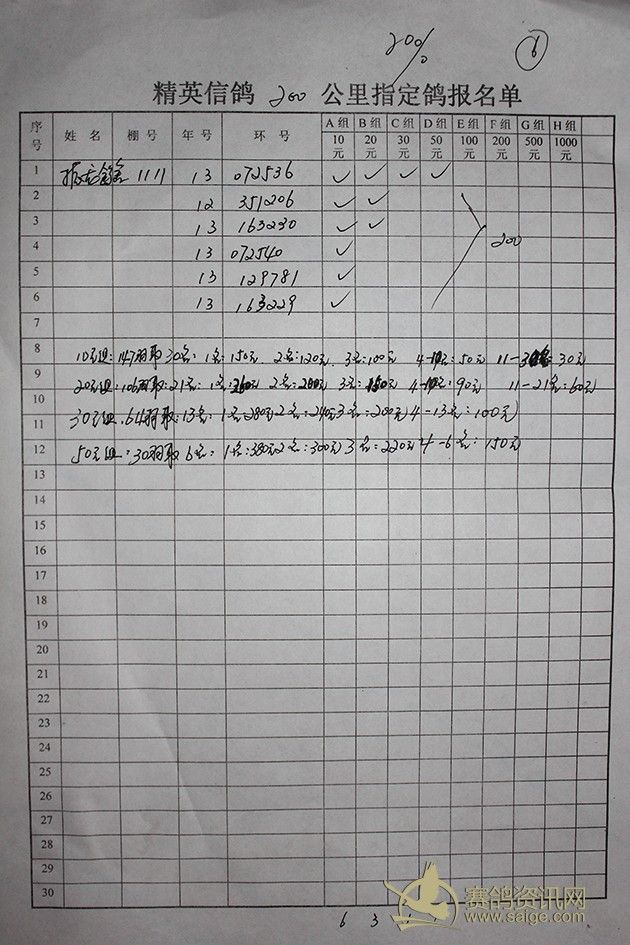 200%
6
精英信鸽 200 公里指定鸽报名单
序号 姓名 棚号 年号 环号 A组10元 B组20元 C组30元 D组50元 E组100元 F组200元 G组500元 H组1000元
1 1111 13 072536 ✓ ✓ ✓ ✓
2 12 351206 ✓ ✓
3 13 163230 ✓ ✓ 200
4 13 072540 ✓
5 13 129781 ✓
6 13 163229 ✓
7
8 10元组:147羽取30名:1名:150元 2名:120元 3名:100元 4-10名:50元 11-30名:30元
9 20元组:106羽取:21名:1名:260元 2名:200元 3名:150元 4-10名:90元 11-21名:60元
10
11 30元组:64羽取:13名:1名:280元2名:240元3名:200元4-13名:100元
12 50元组:30羽取6名:1名:380元2名:300元3名:220元4-6名:150元
13
14
15
16
17
18
19
20
21
22
23
24
25
26
27
28
29
30
6 3 1 1
赛鸽资讯网
www.saige.com